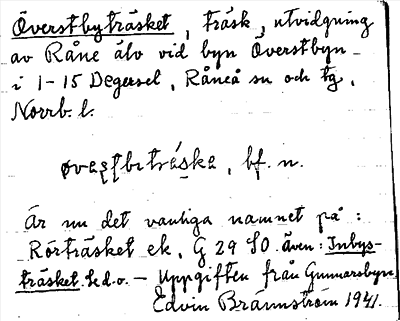 Överstbyträsket, träsk, utvidgning
av Råne älv vid byn Överstbyn
i 1-15 Degersel, Råneå sn och tg,
Norrb. l.
øvaʂʈbɪtráska, bf. n.
Är nu det vanliga namnet på:
Rörträsket ek. G 29 SO. även: Inbys-
träsket. Se d.o. — Uppgiften från Gunnarsbyn
Edvin Brännström 1941.